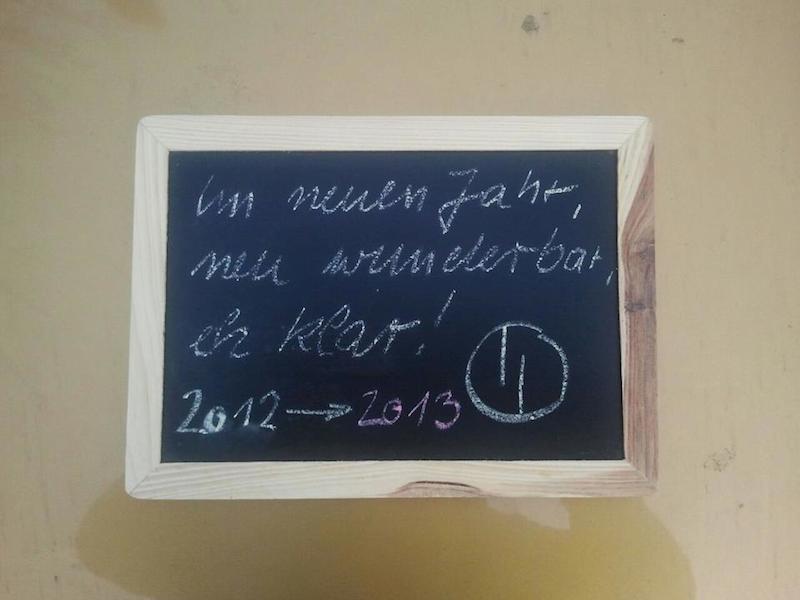 Im neuen Jahr,
neu wunderbar,
eh klar!
2012 → 2013